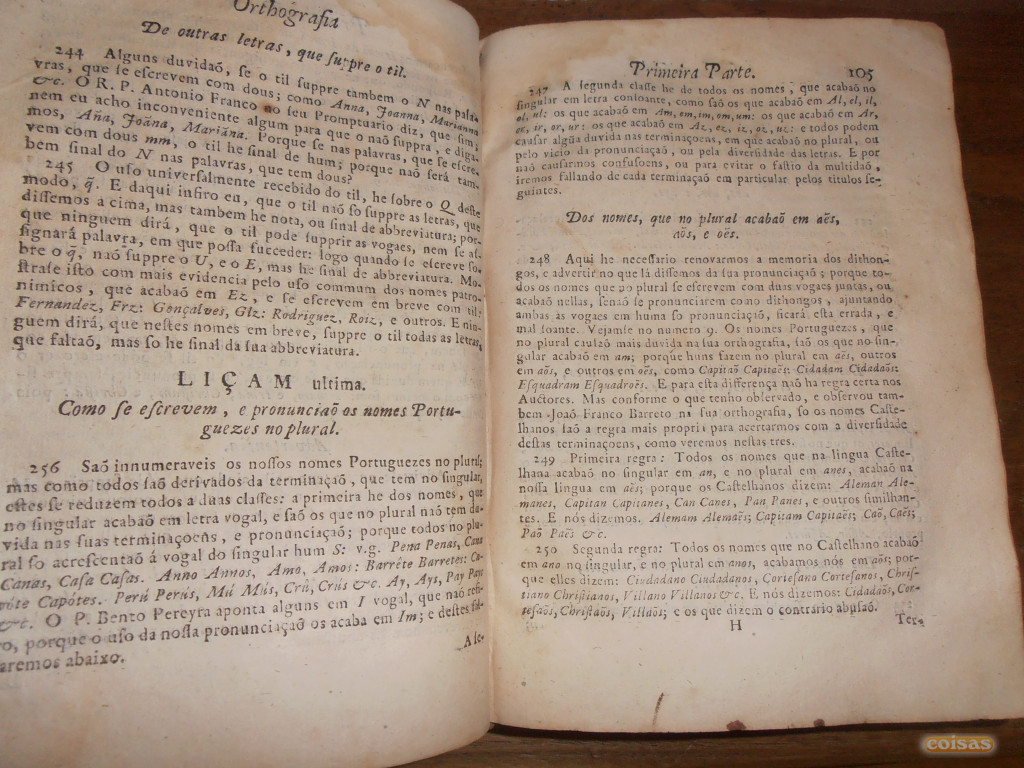 Orthografia
De outras letras, que suppre o til.
244 Alguns duvidaõ, se o til suppre tambem o N nas pala-
vras, que se escrevem com dous; como Anna, Joanna, Marianna
&c. O R. P. Antonio Franco no seu Promptuario diz, que sim;
nem eu acho inconveniente algum para que o naõ suppra, e diga-
mos, Aña, Joãna, Mariãna. Porque se nas palavras, que se escre-
vem com dous mm, o til he sinal de hum; porque naõ será tam-
bem sinal do N nas palavras, que tem dous?
245 O uso universalmente recebido do til, he sobre o Q deste
modo, q̃. E daqui infiro eu, que o til naõ só suppre as letras, que
dissemos a cima, mas tambem he nota, ou sinal de abbreviatura; por-
que ninguem dirá, que o til pode supprir as vogaes, nem se as-
signará palavra, em que possa succeder: logo quando se escreve so-
bre o q̃, naõ suppre o U, e o E, mas he sinal de abbreviatura. Mo-
strase isto com mais evidencia pelo uso commum dos nomes patro-
nimicos, que acabaõ em Ez, e se escrevem em breve com til:
Fernandez, Frz: Gonçalves, Glz: Rodriguez, Roiz, e outros. E nin-
guem dirá, que nestes nomes em breve, suppre o til todas as letras,
que faltaõ, mas so he sinal da sua abbreviatura.
LIÇAM ultima.
Como se escrevem, e pronunciaõ os nomes Portu-
guezes no plural.
256 Saõ innumeraveis os nossos nomes Portuguezes no plural;
mas como todos saõ derivados da terminaçaõ, que tem no singular,
estes se reduzem todos a duas classes: a primeira he dos nomes, que
no singular acabaõ em letra vogal, e saõ os que no plural naõ tem du-
vida nas suas terminaçoens, e pronunciaçaõ; porque todos no plu-
ral so acrescentaõ á vogal do singular hum S: v.g. Pena Penas, Cana
Canas, Casa Casas. Anno Annos, Amo, Amos: Barréte Barretes: Ca-
póte Capótes. Perú Perús, Mú Mús, Crú, Crús &c. Ay, Ays, Pay Pays
&c. O P. Bento Pereyra aponta alguns em I vogal, que naõ
o, porque o uso da nossa pronunciaçaõ os acaba em Im; e destes
aremos abaixo.
A se-
Primeira Parte. 105
247 A segunda classe he de todos os nomes, que acabaõ no
singular em letra consoante, como saõ os que acabaõ em Al, el, il,
ol, ul: os que acabaõ em Am, em, im, om, um: os que acabaõ em Ar,
er, ir, or, ur: os que acabaõ em Az, ez, iz, oz, uz: e todos podem
causar algũa duvida nas terminaçoens, em que acabaõ no plural, ou
pelo vicio da pronunciaçaõ, ou pela diversidade das letras. E por
naõ causarmos confusoens, ou para evitar o fastio da multidaõ,
iremos fallando de cada terminaçaõ em particular pelos titulos se-
guintes.
Dos nomes, que no plural acabaõ em aẽs,
aõs, e oẽs.
248 Aqui he necessario renovarmos a memoria dos dithon-
gos, e advertir no que lá dissemos da sua pronunciaçaõ; porque to-
dos os nomes que no plural se escrevem com duas vogaes juntas, ou
acabaõ nellas, senaõ se pronunciarem como dithongos, ajuntando
ambas as vogaes em huma so pronunciaçaõ, ficará esta errada, e
mal soante. Vejamse no numero 9. Os nomes Portuguezes, que
no plural causaõ mais duvida na sua orthografia, saõ os que no sin-
gular acabaõ em am; porque huns fazem no plural em aẽs, outros
em aõs, e outros em oẽs, como Capitaõ Capitaẽs: Cidadam Cidadaõs:
Esquadram Esquadroẽs. E para esta differença naõ ha regra certa nos
Auctores. Mas conforme o que tenho observado, e observou tam-
bem Joaõ Franco Barreto na sua orthografia, so os nomes Caste-
lhanos saõ a regra mais propria para acertarmos com a diversidade
destas terminaçoens, como veremos nestas tres.
249 Primeira regra: Todos os nomes que na lingua Caste-
lhana acabaõ no singular em an, e no plural em anes, acabaõ na
nossa lingua em aẽs; porque os Castelhanos dizem: Aleman Ale-
manes, Capitan Capitanes, Can Canes, Pan Panes, e outros similhan-
tes. E nós dizemos. Alemam Alemaẽs; Capitam Capitaẽs; Caõ, Caẽs;
Paõ Paẽs &c.
250 Segunda regra: Todos os nomes que no Castelhano acabaõ
em ano no singular, e no plural em anos, acabamos nós em aõs; por-
que elles dizem: Ciudadano Ciudadanos, Cortesano Cortesanos, Chris-
tiano Christianos, Villano Villanos &c. E nós dizemos: Cidadaõs, Cor-
tesaõs, Christaõs, Villaõs; e os que dizem o contrário abusaõ.
H
Ter-
coisas